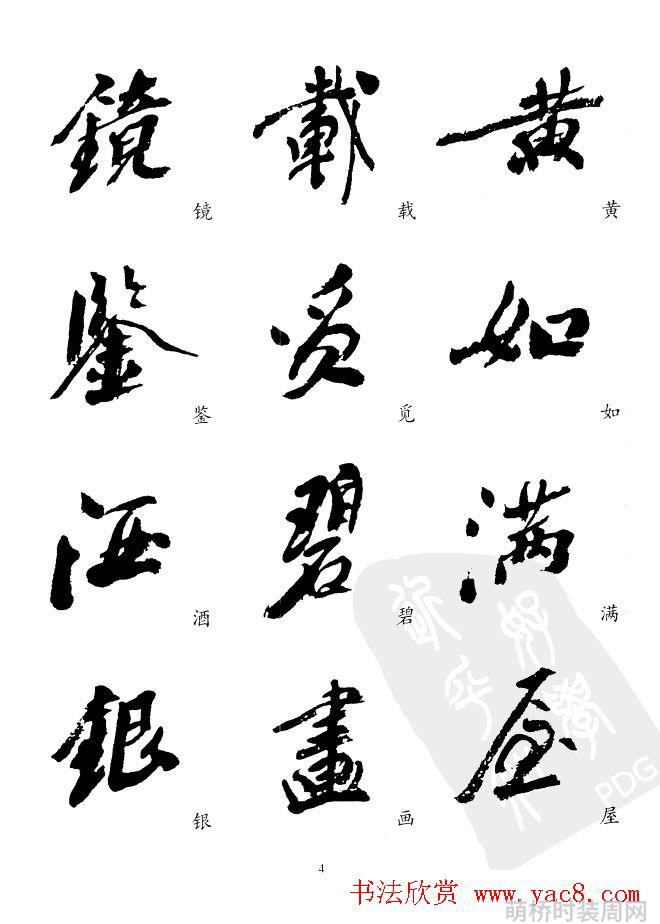 鏡 載 黄
镜 载 黄
鑒 覓 如
鉴 觅 如
酒 碧 满
酒 碧 满
銀 畫 屋
银 画 屋
PDG
4
书法欣赏 www.yac8.com
萌桥时装周网